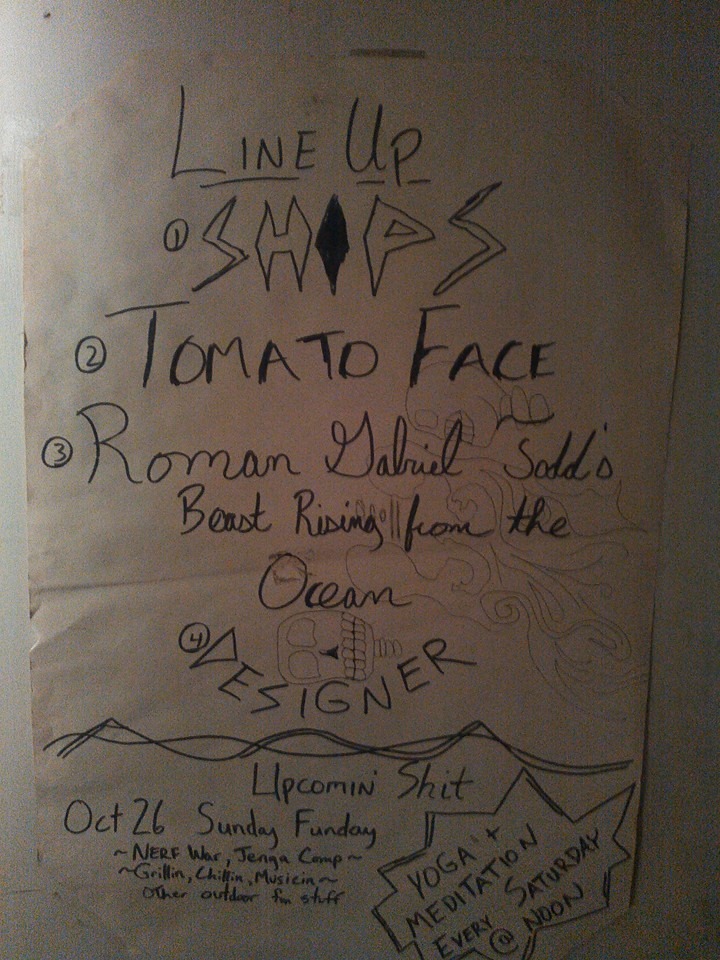 LINE UP
① SHIPS
② TOMATO FACE
③ Roman Gabriel Todd's
Beast Rising from the
Ocean
④ DESIGNER
UPCOMIN' Shit
Oct 26 Sunday Funday
~ NERF War, Jenga Comp ~
~ Grillin, Chillin, Musicin ~
Other outdoor fun stuff
YOGA +
MEDITATION
EVERY SATURDAY
@ NOON